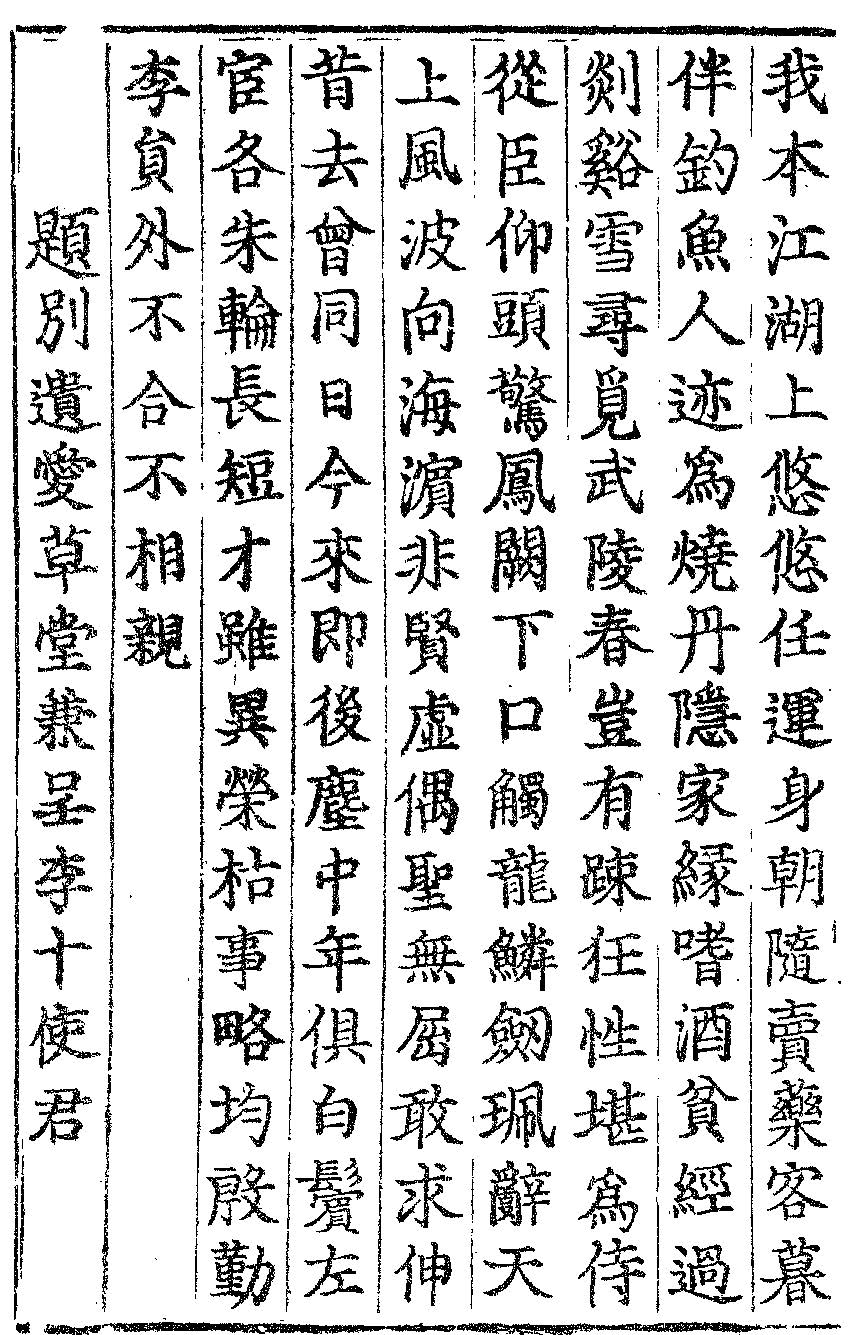 我本江湖上悠悠任運身朝隨賣藥客暮
伴釣魚人迹爲燒丹隱家縁嗜酒貧經過
剡谿雪尋覓武陵春豈有踈狂性堪爲侍
從臣仰頭驚鳳闕下口觸龍鱗劒珮辭天
上風波向海濵非賢虛偶聖無屈敢求伸
昔去曾同日今來即後塵中年俱白鬢左
宦各朱輪長短才雖異榮枯事略均殷勤
李貟外不合不相親
題別遺愛草堂兼呈李十使君